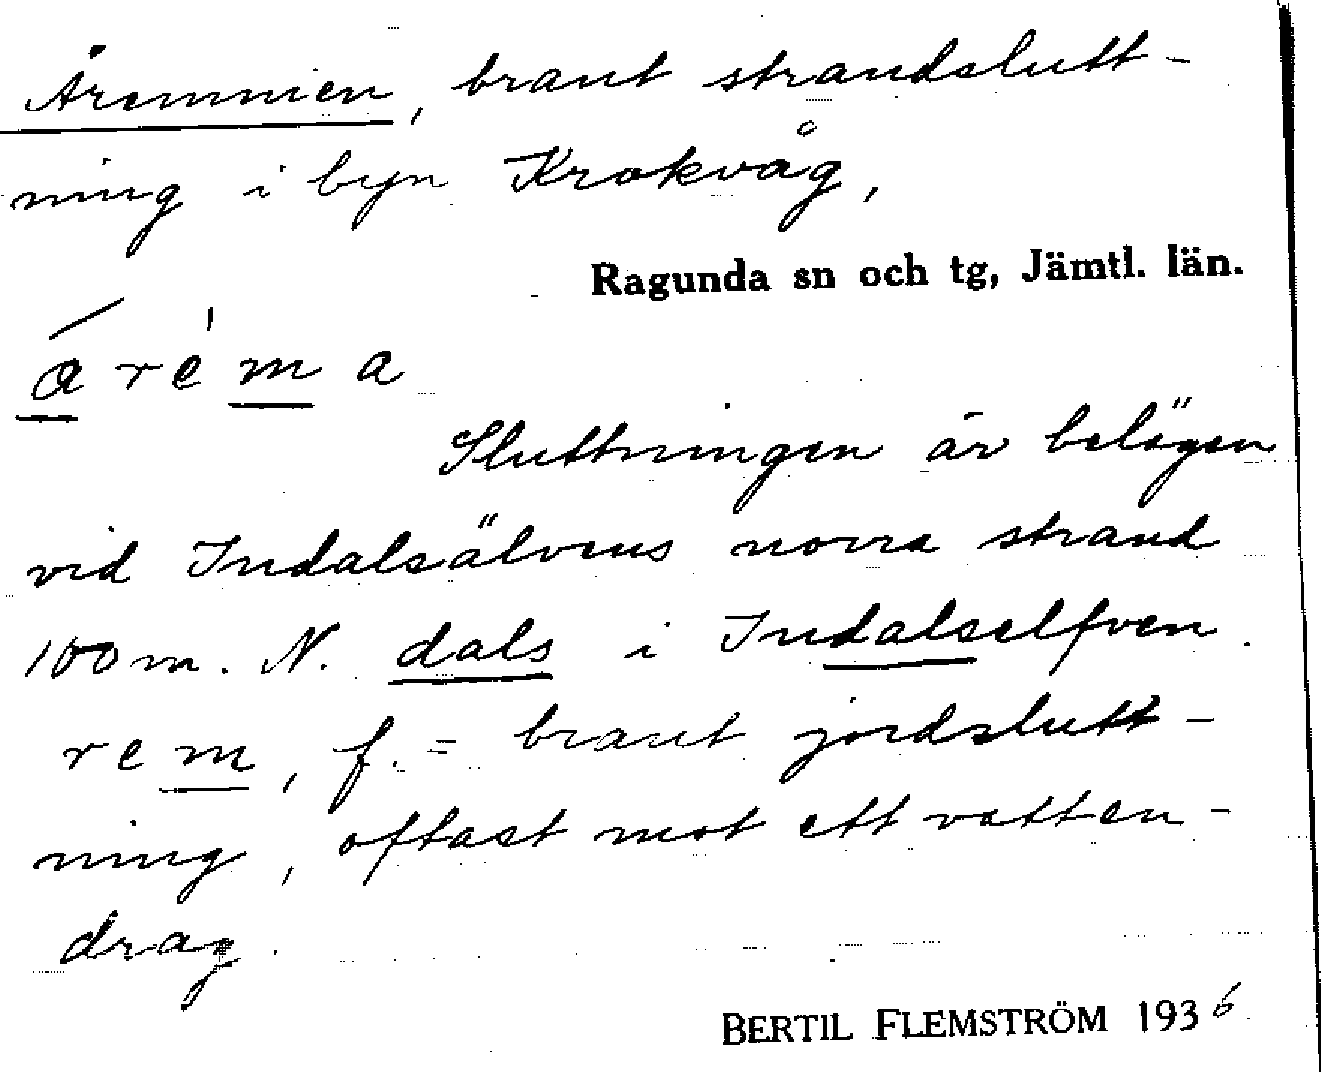 Åremmen, brant strandslutt-
ning i byn Krokvåg,
Ragunda sn och tg, Jämtl. län.
á r é m a
Sluttningen är belägen
vid Indalsälvens norra strand
100 m. N. dals i Indalselfven.
rem, f. = brant jordslutt-
ning, oftast mot ett vatten-
drag.
BERTIL FLEMSTRÖM 1936